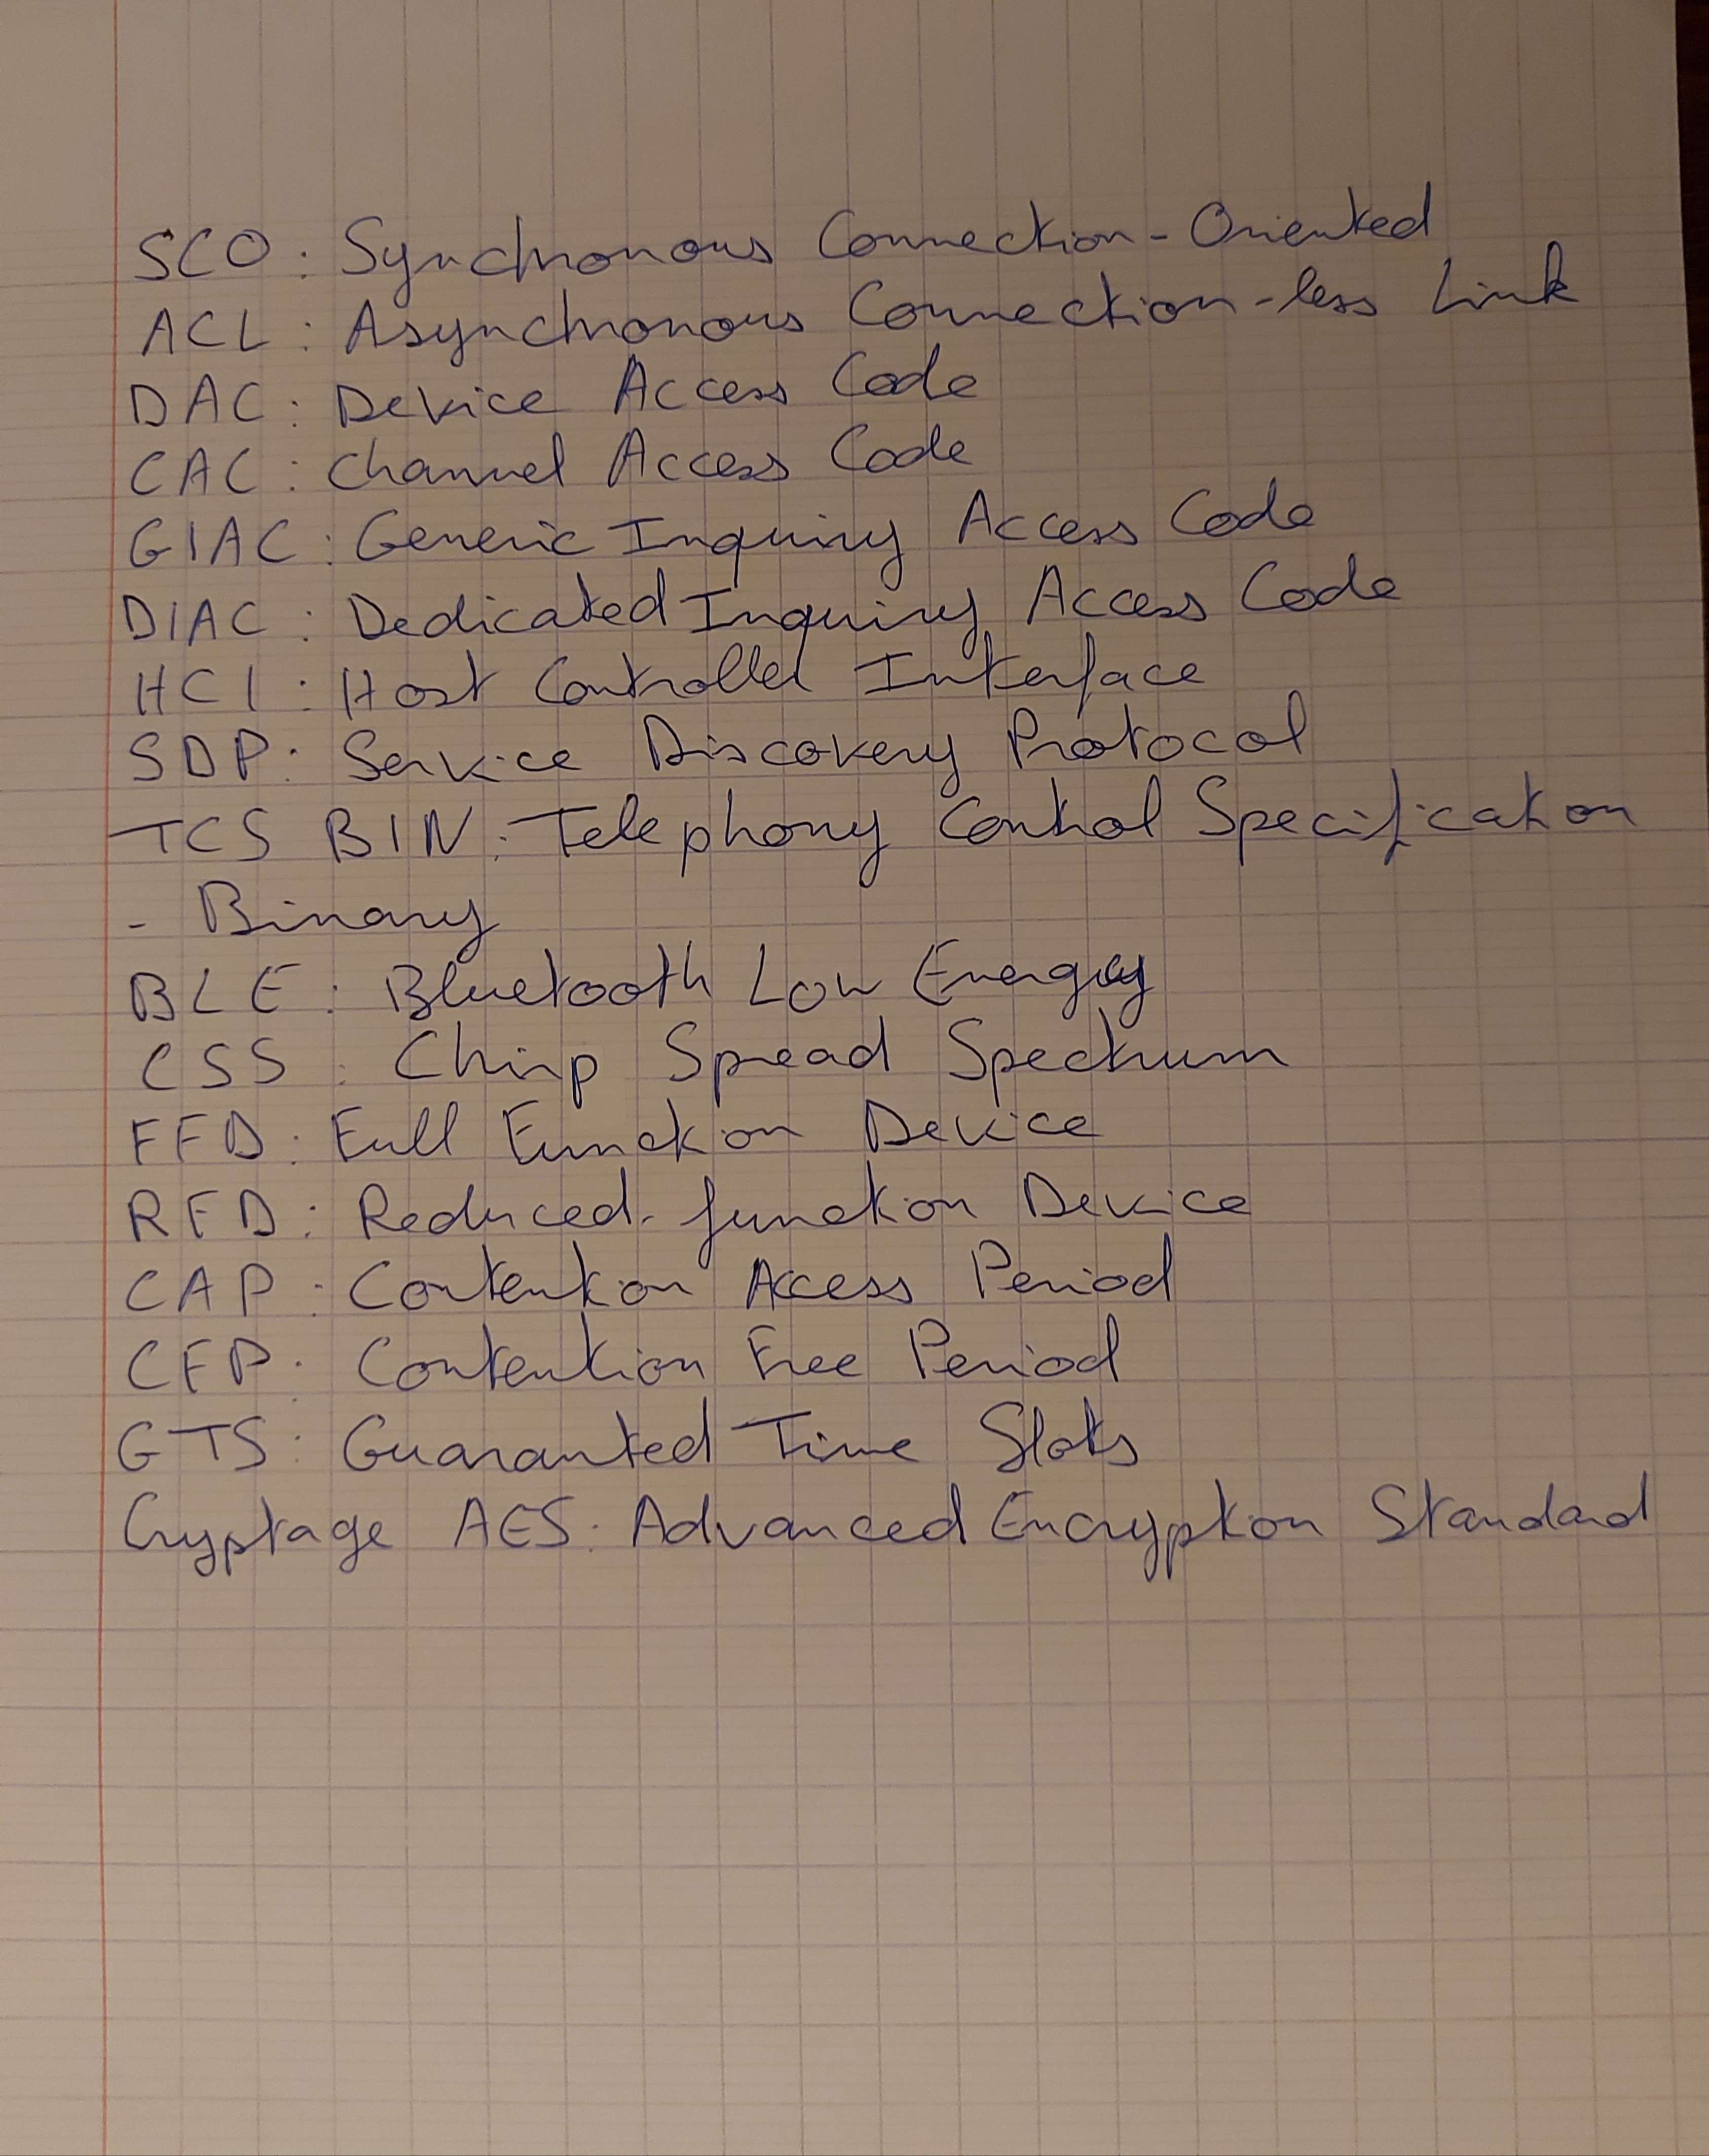 SCO : Synchronous Connection-Oriented
ACL : Asynchronous Connection-less Link
DAC : Device Access Code
CAC : Channel Access Code
GIAC : Generic Inquiry Access Code
DIAC : Dedicated Inquiry Access Code
HCI : Host Controller Interface
SDP : Service Discovery Protocol
TCS BIN : Telephony Control Specification
- Binary
BLE : Bluetooth Low Energy
CSS : Chirp Spread Spectrum
FFD : Full Function Device
RFD : Reduced-function Device
CAP : Contention Access Period
CFP : Contention Free Period
GTS : Guaranted Time Slots
Cryptage AES : Advanced Encryption Standard